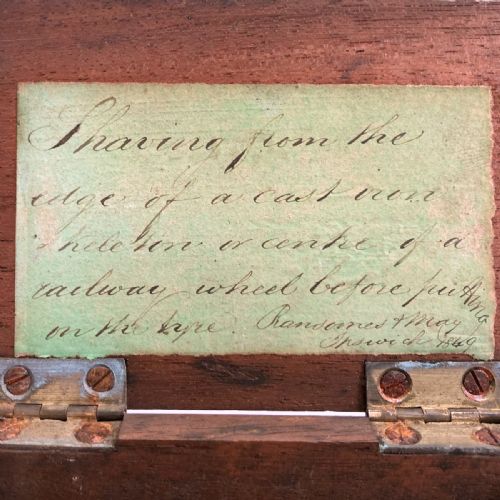 Shaving from the
edge of a cast iron
skeleton or centre of a
railway wheel before putting
on the tyre. Ransomes & May
Ipswich 1849